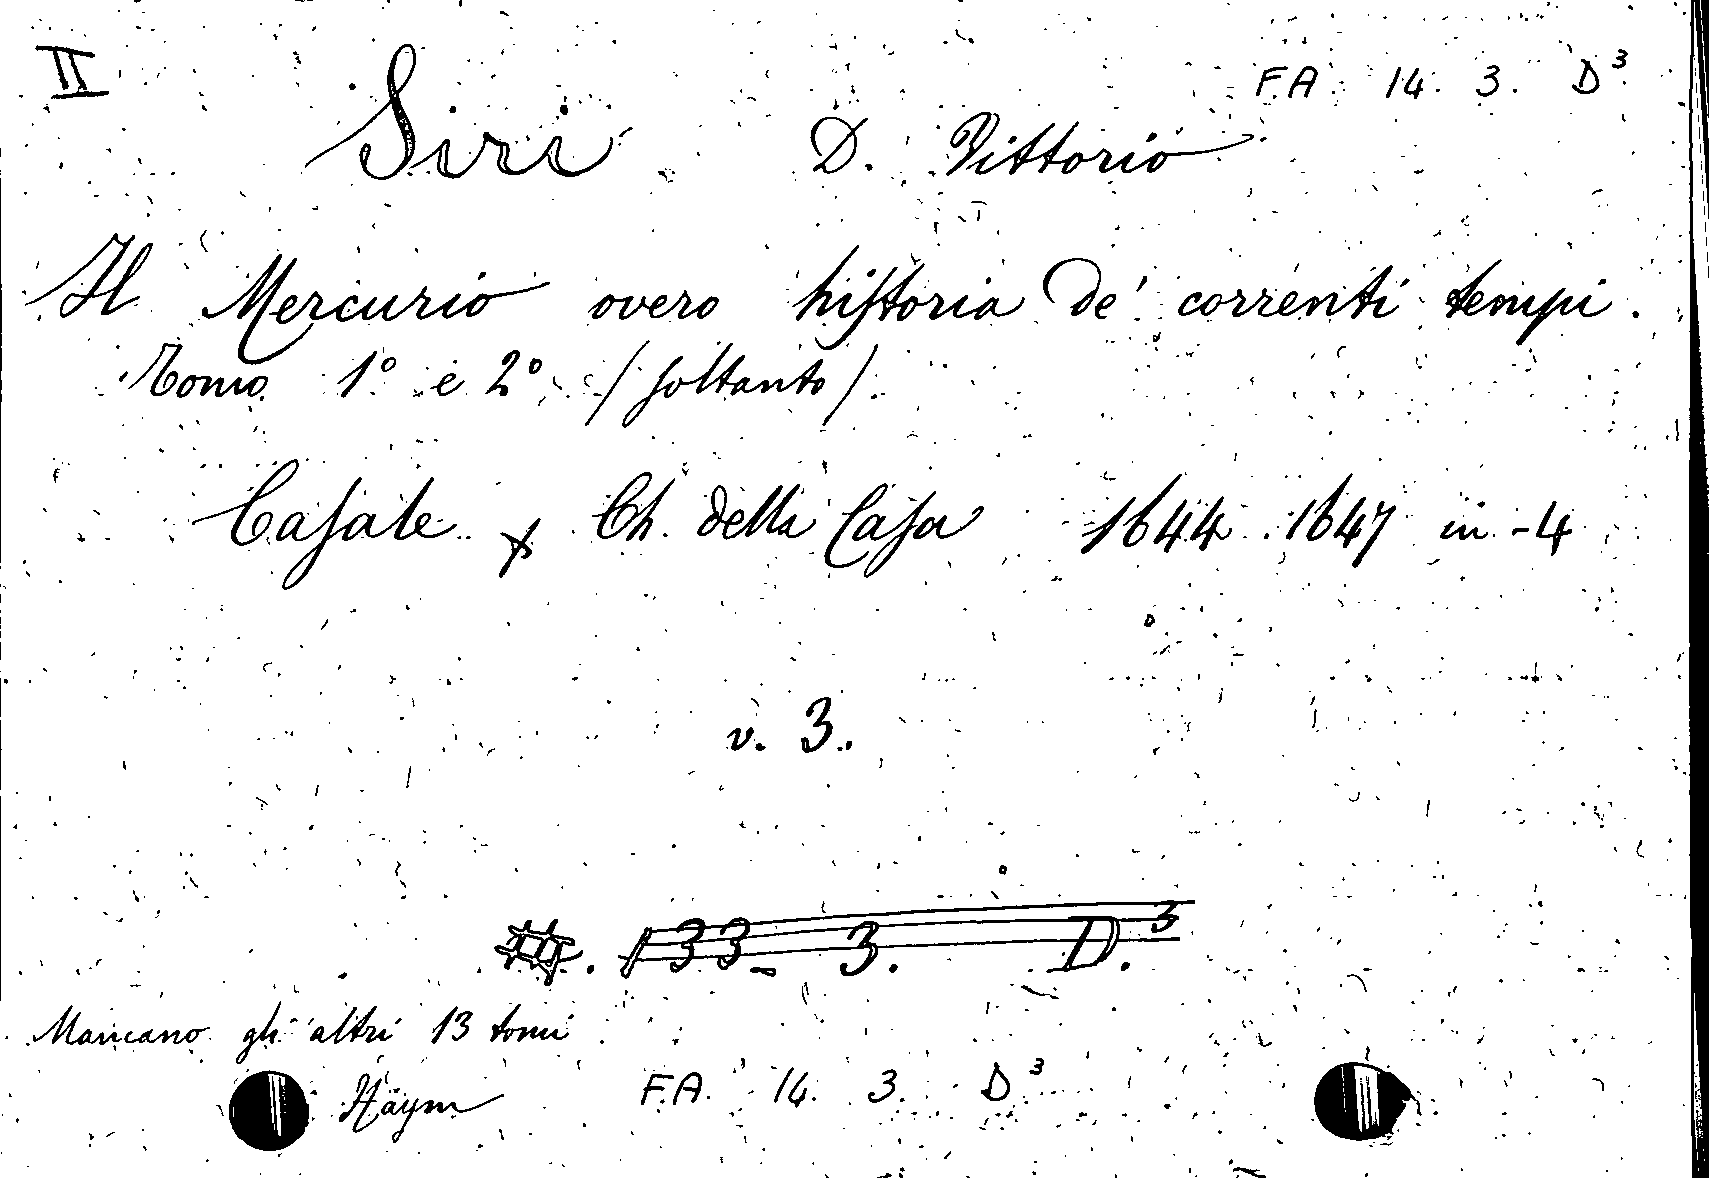 II
F.A. 14. 3. D³
Siri D. Vittorio
Il Mercurio overo hiſtoria de' correnti tempi.
Tomo 1° e 2° (ſoltanto).
Caſale Ch. della Caſa 1644 1647 in-4
v. 3.
133_ 3. D.³
Mancano gli altri 13 tomi
Haym F.A. 14. 3. D³